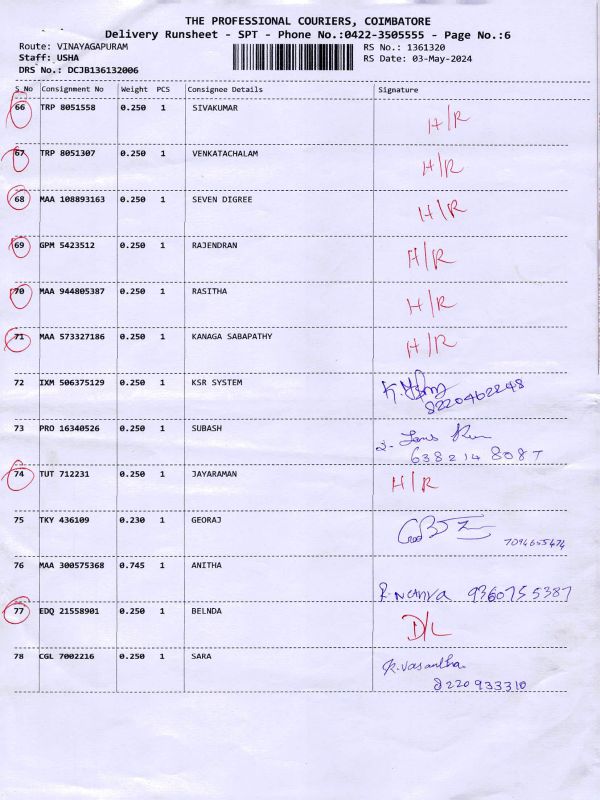 THE PROFESSIONAL COURIERS, COIMBATORE
Delivery Runsheet - SPT - Phone No.:0422-3505555 - Page No.:6
Route: VINAYAGAPURAM RS No.: 1361320
Staff: USHA RS Date: 03-May-2024
DRS No.: DCJB136132006
S.No Consignment No Weight PCS Consignee Details Signature
66 TRP 8051558 0.250 1 SIVAKUMAR H/R
67 TRP 8051307 0.250 1 VENKATACHALAM H/R
68 MAA 108893163 0.250 1 SEVEN DIGREE H/R
69 GPM 5423512 0.250 1 RAJENDRAN H/R
70 MAA 944805387 0.250 1 RASITHA H/R
71 MAA 573327186 0.250 1 KANAGA SABAPATHY H/R
72 IXM 506375129 0.250 1 KSR SYSTEM
8220462248
73 PRO 16340526 0.250 1 SUBASH
638214 8087
74 TUT 712231 0.250 1 JAYARAMAN H/R
75 TKY 436109 0.230 1 GEORAJ
7094655474
76 MAA 300575368 0.745 1 ANITHA
9360755387
77 EDQ 21558901 0.250 1 BELNDA D/L
78 CGL 7002216 0.250 1 SARA R.Vasantha
8220933310